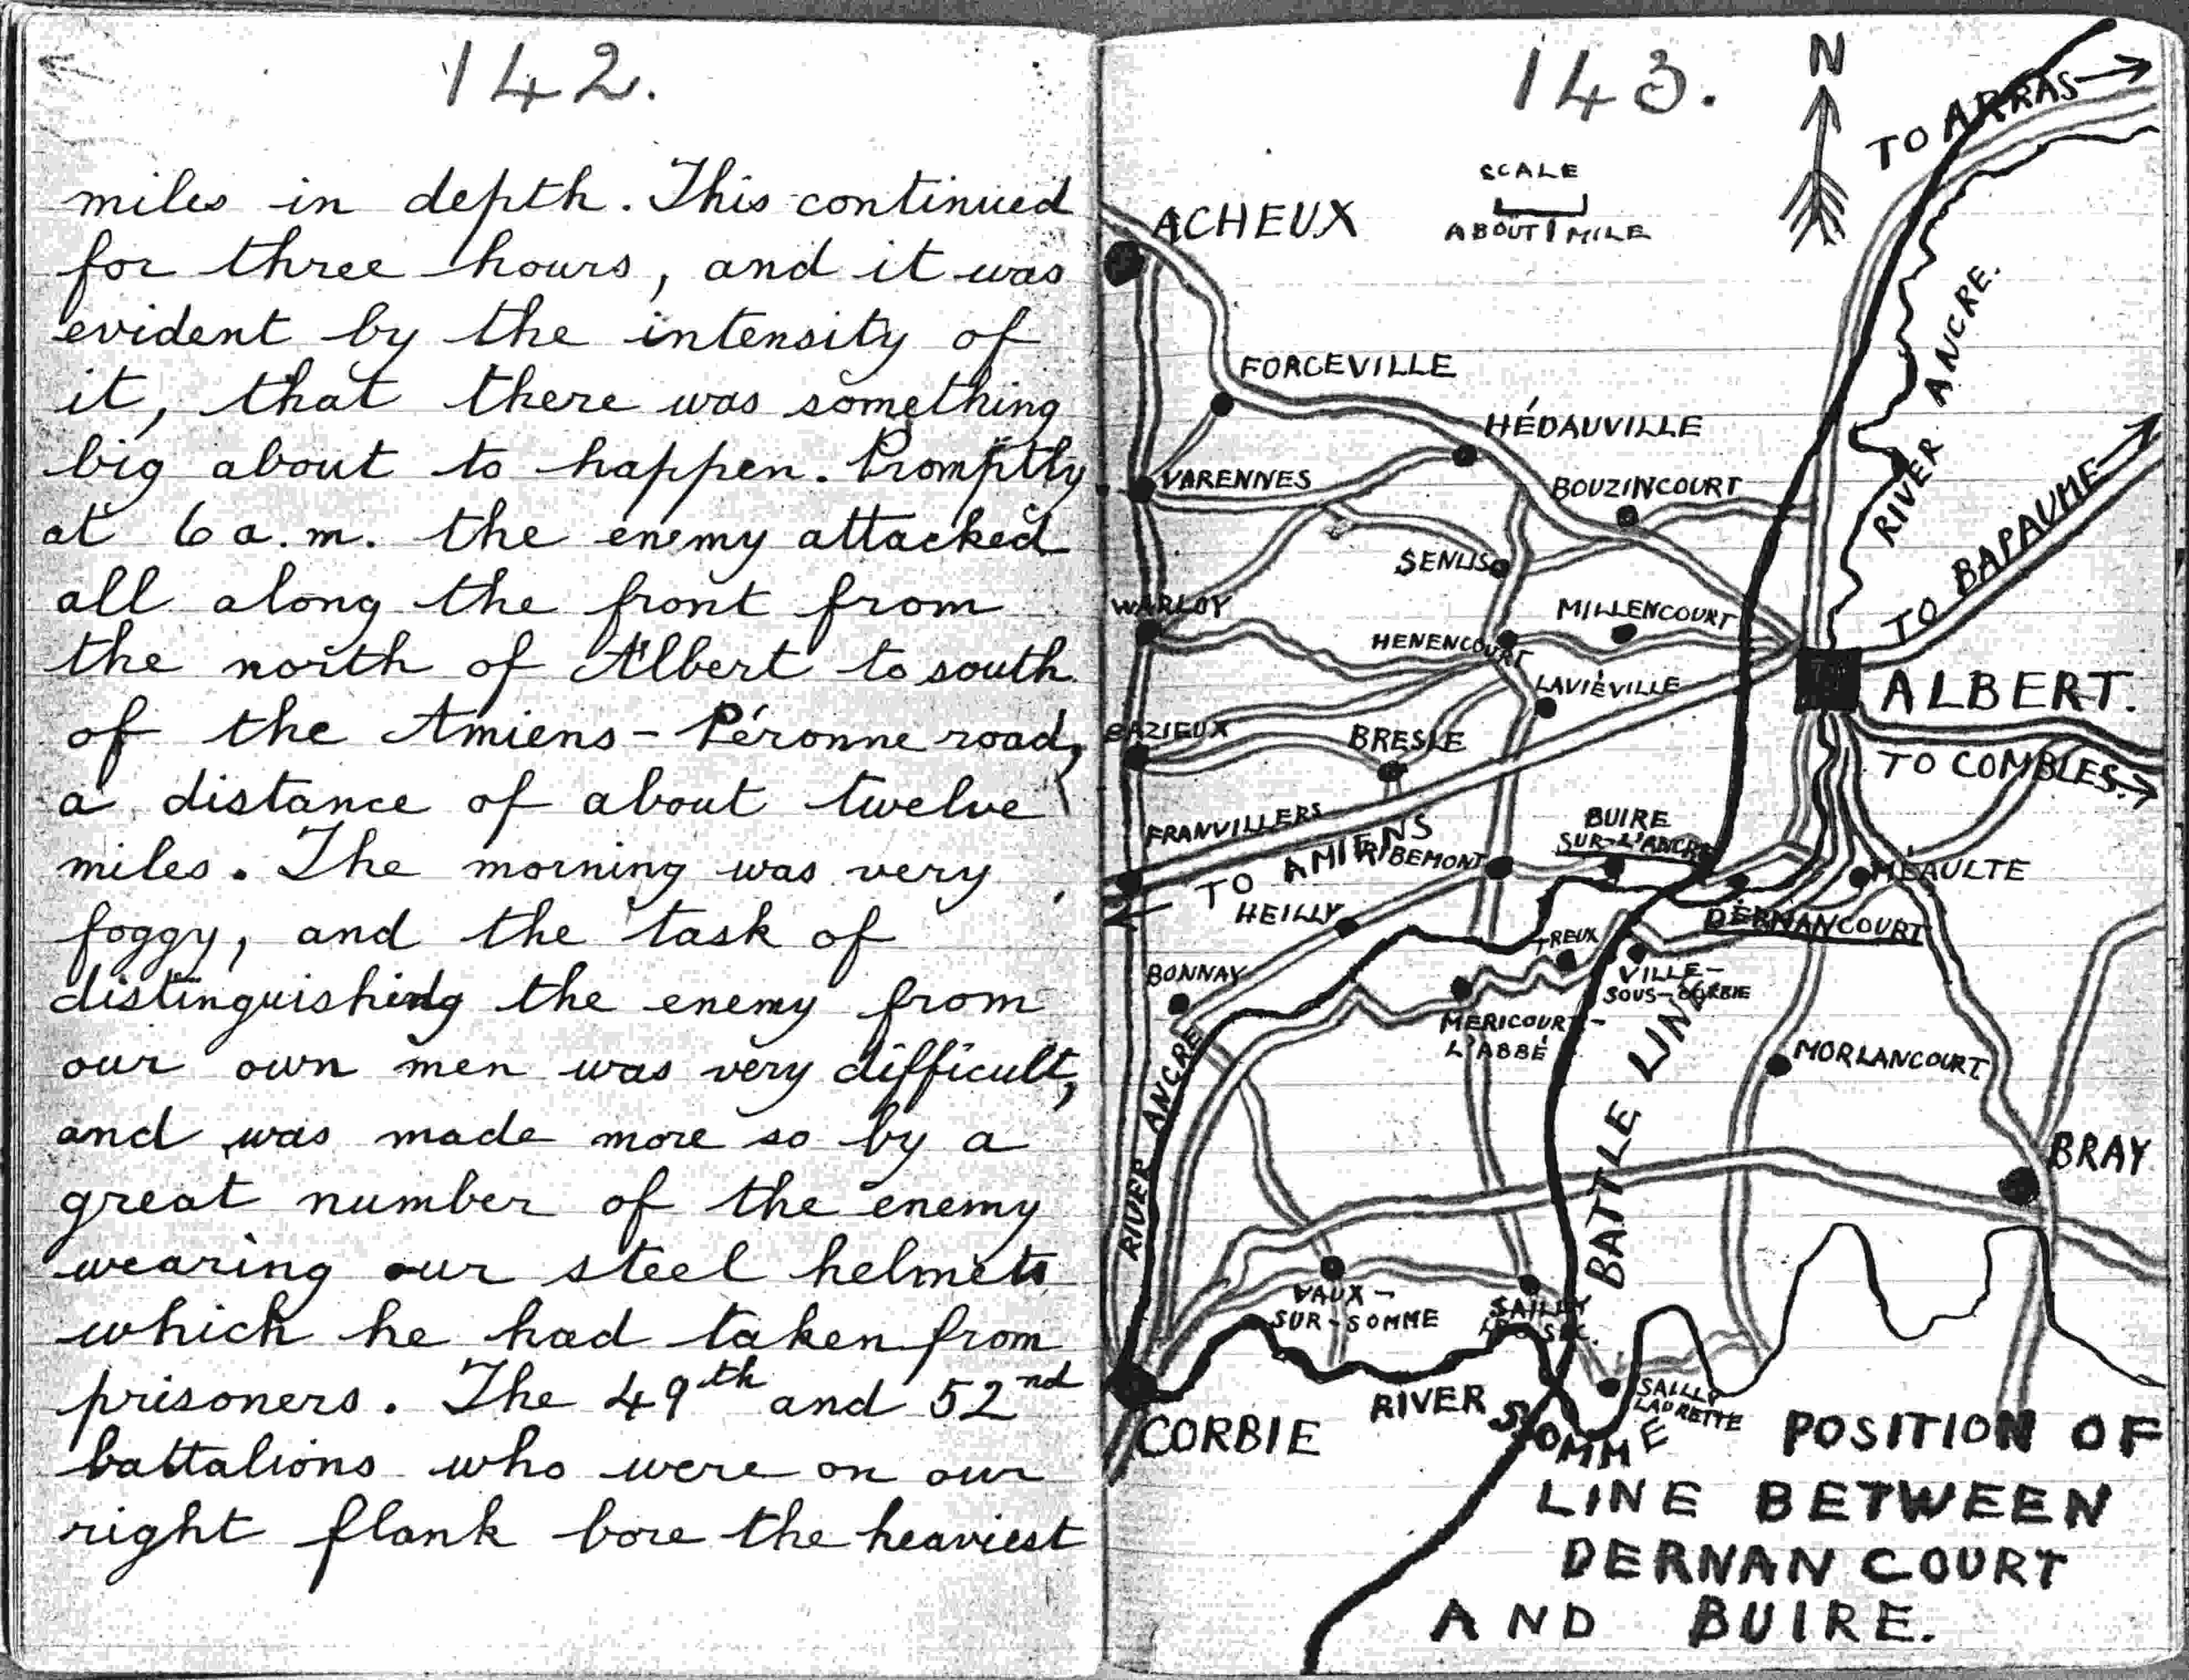 142.
miles in depth. This continued
for three hours, and it was
evident by the intensity of
it, that there was something
big about to happen. Promptly
at 6 a.m. the enemy attacked
all along the front from
the north of Albert to south
of the Amiens - Péronne road,
a distance of about twelve
miles. The morning was very
foggy, and the task of
distinguishing the enemy from
our own men was very difficult,
and was made more so by a
great number of the enemy
wearing our steel helmets
which he had taken from
prisoners. The 49th and 52nd
battalions who were on our
right flank bore the heaviest
143.
N
TO ARRAS
SCALE
ABOUT 1 MILE
ACHEUX
RIVER ANCRE.
FORCEVILLE
HÉDAUVILLE
VARENNES
BOUZINCOURT
TO BAPAUME
SENLIS
WARLOY
MILLENCOURT
HENENCOURT
LAVIÉVILLE
ALBERT.
BAZIEUX
BRESLE
TO COMBLES.
FRANVILLERS
BUIRE
SUR-L'ANCRE
TO AMIENS
RIBEMONT
MÉAULTE
HEILLY
DERNANCOURT
TREUX
BONNAY
VILLE-
SOUS-CORBIE
MERICOURT-
L'ABBÉ
BATTLE LINE
MORLANCOURT
RIVER ANCRE
BRAY
VAUX-
SUR-SOMME
SAILLY
LE-SEC.
SAILLY
LAURETTE
CORBIE
RIVER SOMME
POSITION OF
LINE BETWEEN
DERNANCOURT
AND BUIRE.